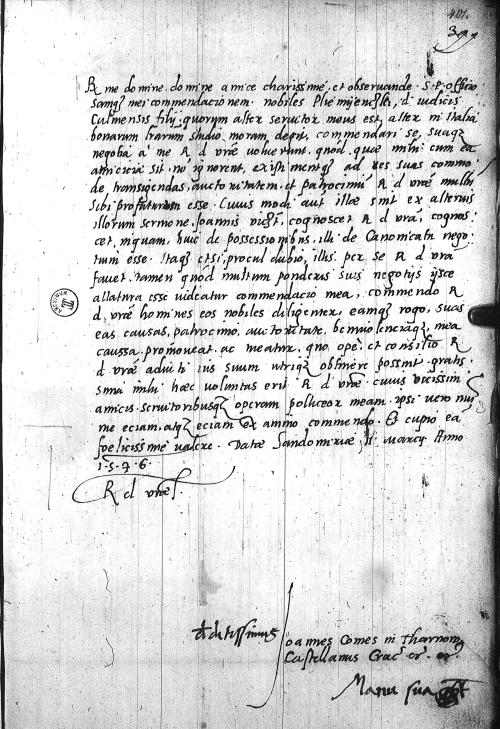 401.
R me domine domine amice charissime et observande. S. P. officio
samq3 mei commendacionem. nobiles d. iudicis
Calmensis filij, quorum alter servitor meus est, alter in Italia
bonarum lrarum studio morum degit, commendari se, suaq3
negocia a me R d vrae voluerunt. quod, quae mihi cum ea
amicicia sit, no ignorent, existimentq3 ad res suas commo
de transigendas, auctoritatem, et patrocinium R d vrae multum
sibi profuturum esse. Cuius modi aut illae sint ex alterius
illorum sermone, Joannis vicz, cognoscet R d vra, cognos
cet, inquam, huic de possessionibus, illi de Canonicatu nego
tium esse. Itaq3 etsi procul dubio, illis per se R d vra
favet. tamen quod multum ponderis suis negotijs ipsae
allatura esse videatur commendacio mea, commendo R
d vrae homines eos nobiles diligenter, eamq3 rogo, suas
eas causas, patrocinio, auctoritate, benivolenciaq3, mea
caussa promoveat. ac meatur, quo ope et consilio R
d vrae aduti ius suum utriq3 obtinere possint. gratis
sima mihi haec voluntas erit R d vrae. cuius vicissim
amicis servitoribusq3 operam polliceor meam. ipsi vero
me eciam, atq3 eciam ex animo commendo. Et cupio ea
foelicissime valere. Datae Sandomiriae, II marcij Anno
1.5.4.6.
R d vrae
deditissimus
Joannes Comes in Tharnow
Castellanus Crac etc. etc.
Manu sua sbt